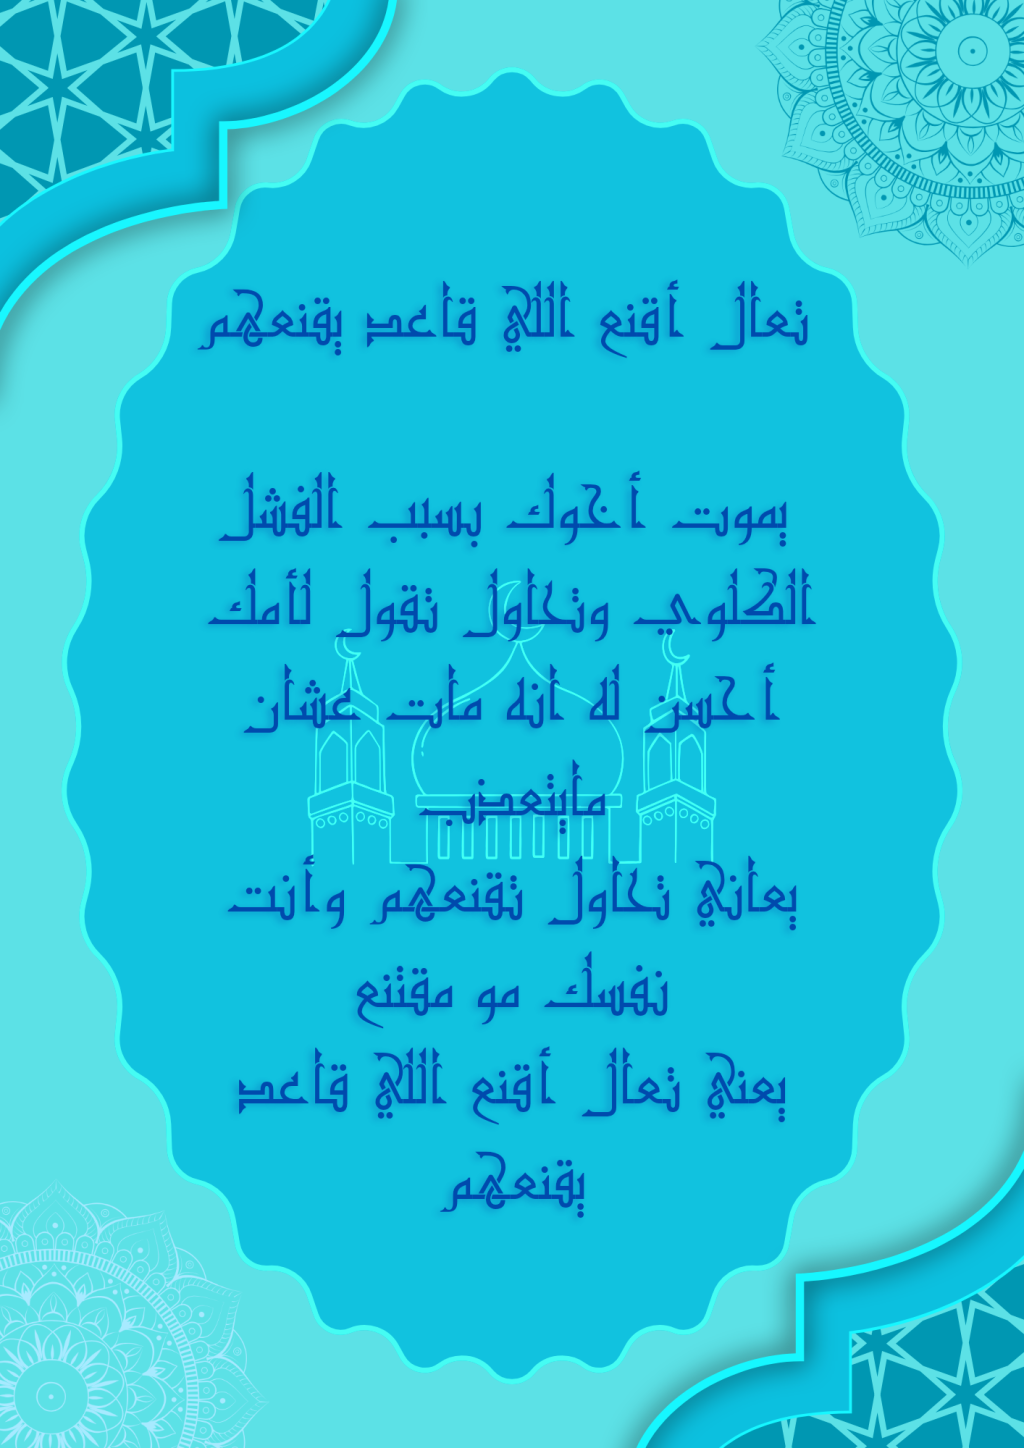 تعال أقنع اللي قاعد يقنعهم
يموت أخوك بسبب الفشل
الكلوي وتحاول تقول لأمك
أحسن له انه مات عشان
مايتعذب
يعاني تحاول تقنعهم وأنت
نفسك مو مقتنع
يعني تعال أقنع اللي قاعد
يقنعهم